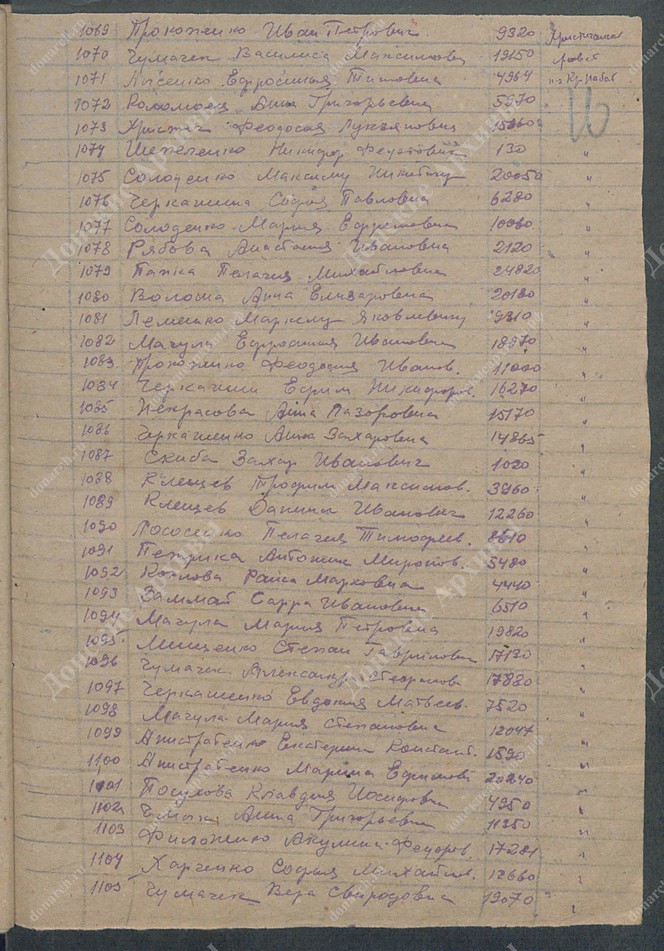 1069 Прокоженко Иван Петрович 9320
1070 Чумачек Василиса Максимовн 19150
1071 Лисенко Евфросиния Титовна 4964
1072 Анна Григорьевна 5970
1073 Феодосия Лукьяновна
1074 Шепеленко Никифор 130
1075 Солоденко Максиму Никитичу 20050 "
1076 Черкашина София Павловна 6280 "
1077 Солоденко Мария Ефремовна 10080 "
1078 Рябова Анастасия Ивановна 2120 "
1079 Папка Пелагия Михайловна 24820 "
1080 Волоша Анна Елизаровна 20180 "
1081 Лемешко Маркелу Яковлевичу 9810 "
1082 Мачула Евфросиния Ивановна 18970 "
1083 Прокоженко Феодосия Иванов. 11000 "
1084 Черкашин Ефим Никифоров. 16270 "
1085 Некрасова Анна Лазаровна 15170 "
1086 Черкашенко Анна Захаровна 14865 "
1087 Скиба Захар Иванович 1020 "
1088 Клещев Трофим Максимов. 3960 "
1089 Клещев Данил Иванович 12260 "
1090 Пелагия Тимофеев. 8610 "
1091 Петрика Антонина Миронов. 5480 "
1092 Козлова Раиса Марковна 4440 "
1093 Заммай Сарра Ивановна 6510 "
1094 Мачула Мария Петровна 19820 "
1095 Мищенко Степан Гаврилович 17130 "
1096 Чумачек Александр Стефанов 17880 "
1097 Черкашенко Евдокия Матвеев. 7520 "
1098 Мачула Мария Степановна 12047 "
1099 Апистратенко Екатерина Констант. 1590 "
1100 Апистратенко Марина Ефимовн 20240 "
1101 Посулова Клавдия Иосифовна 4950 "
1102 Анна Григорьевна 11350 "
1103 Филоненко Акулина Федоров. 17281 "
1104 Харченко София Михайлов. 12660 "
1105 Чумачек Вера Свиридовна 19070 "